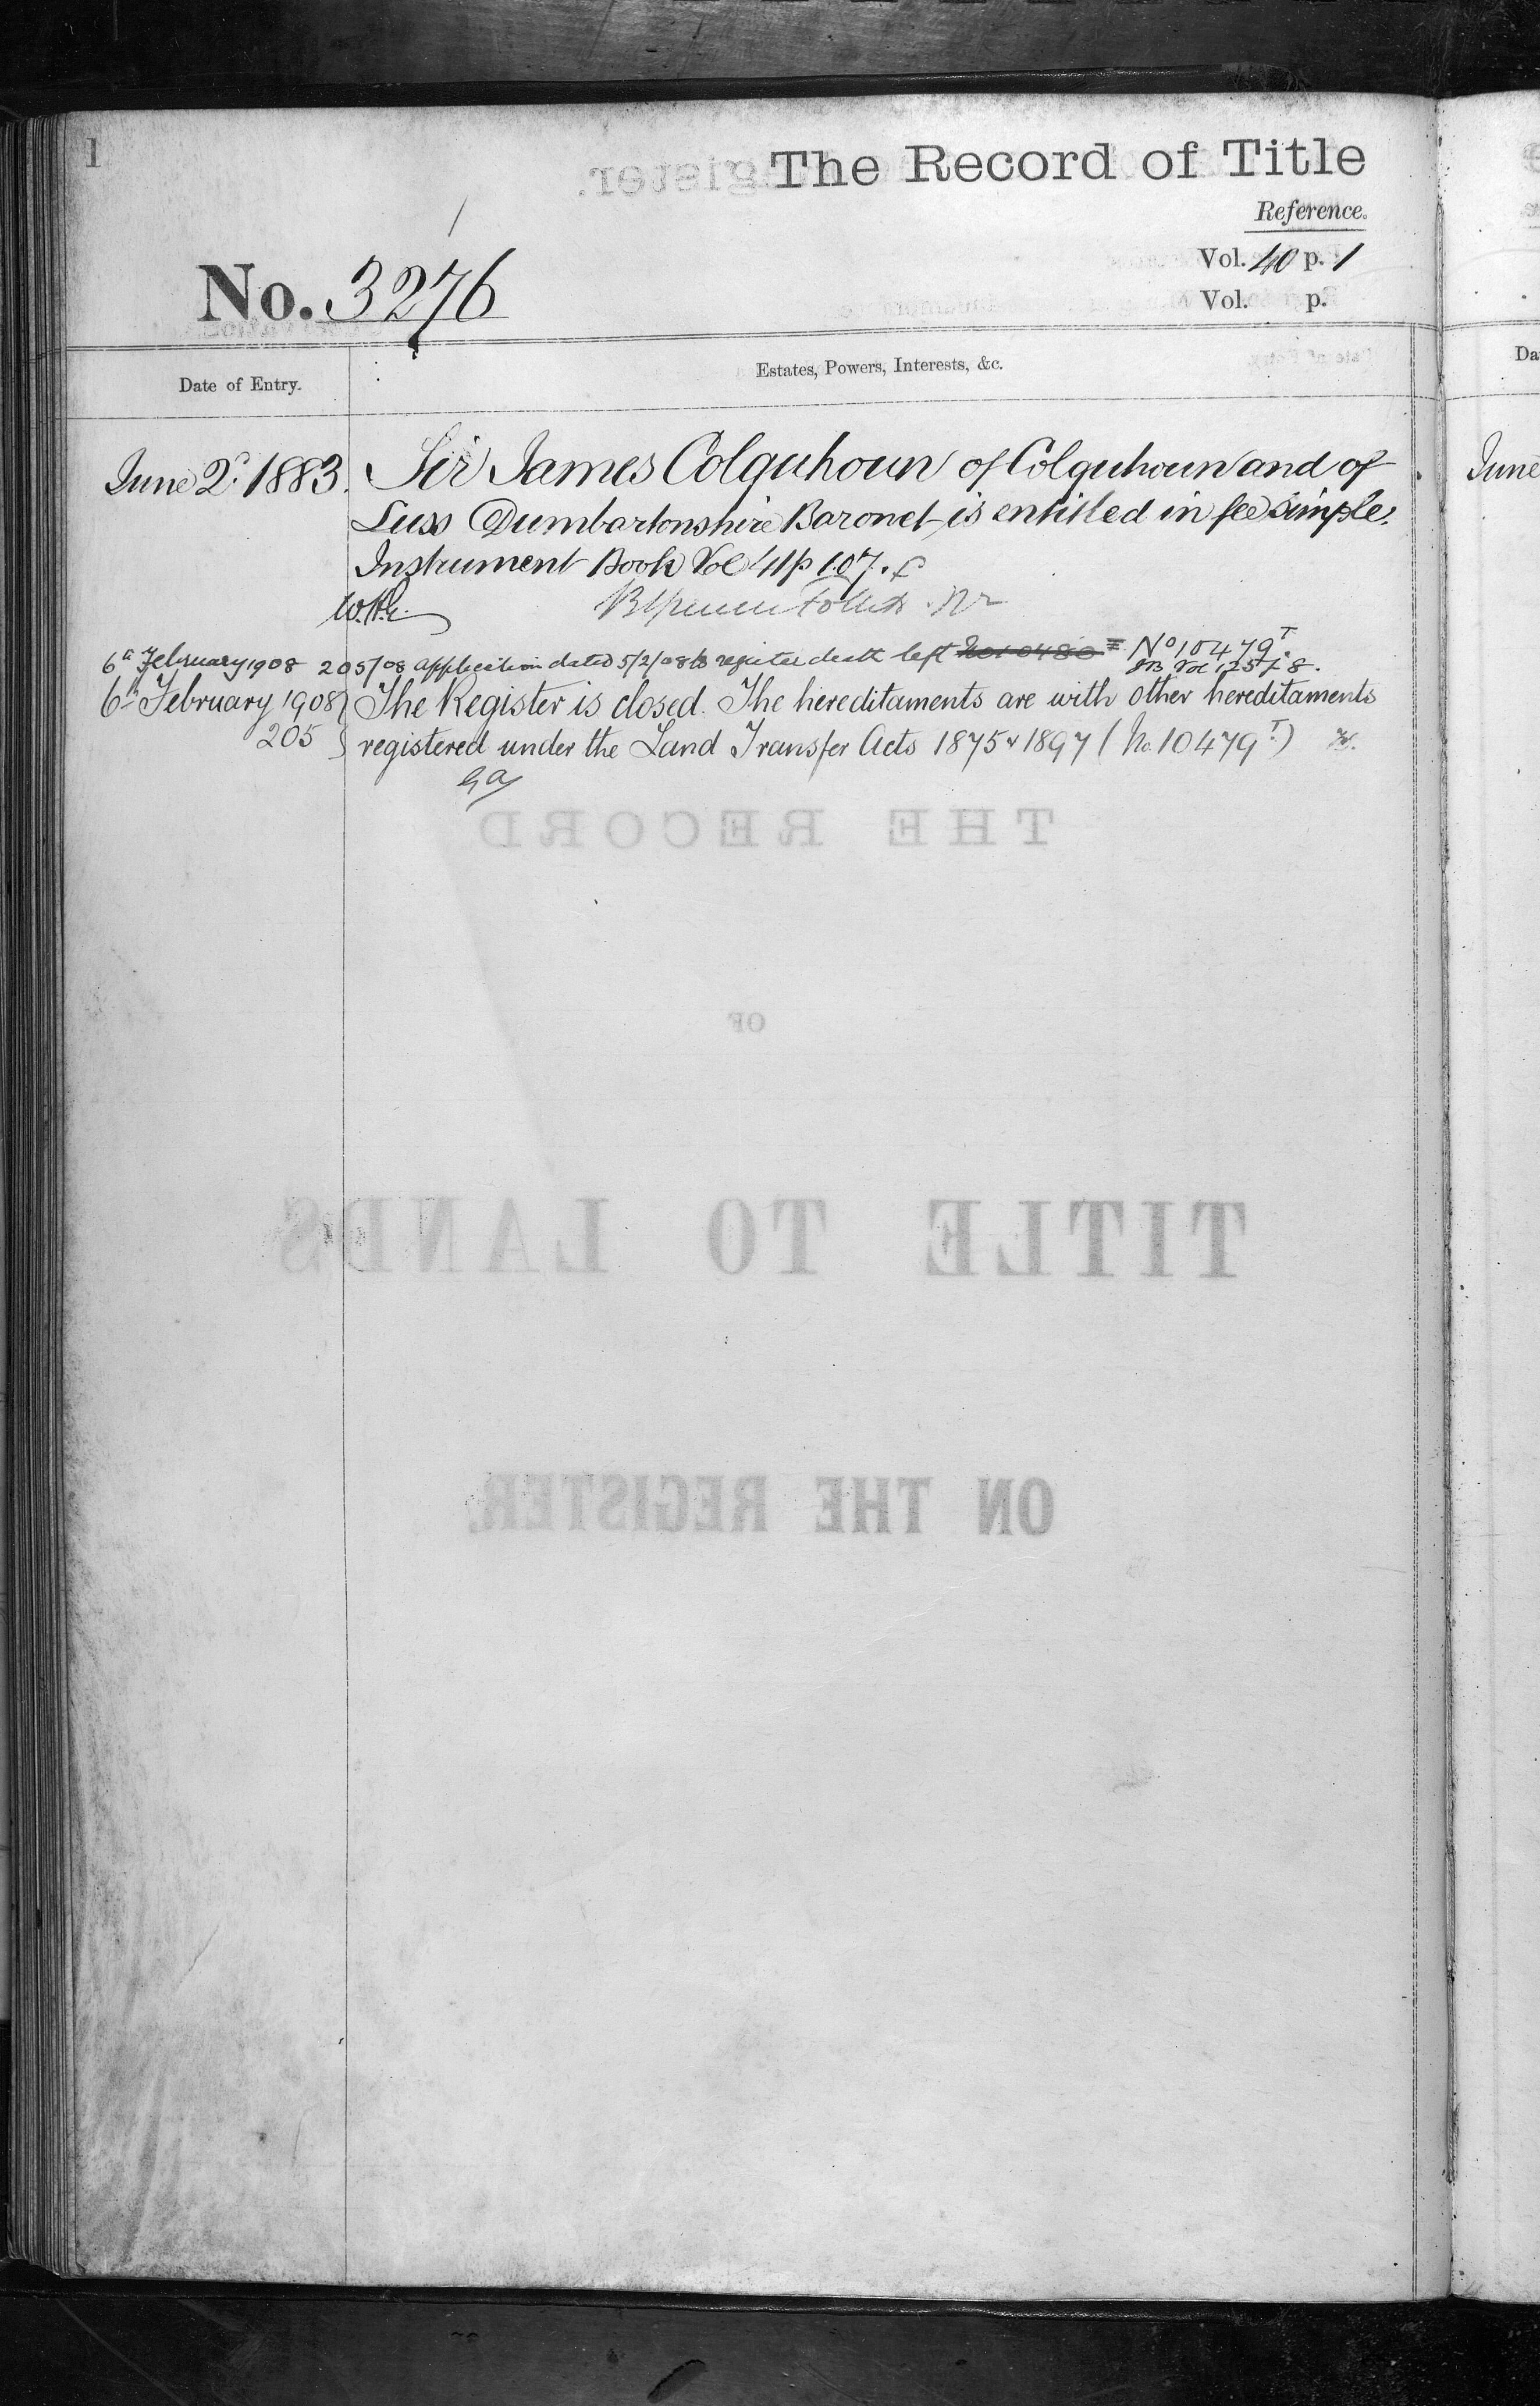 1
The Record of Title
Reference.
Vol. 40 p. 1
No. 3276
Vol. p.
Date of Entry.
Estates, Powers, Interests, &c.
June 2d 1883. Sir James Colquhoun of Colquhoun and of
Luss Dumbartonshire Baronet is entitled in fee simple.
Instrument Book Vol 41 p 107.
6th February 1908 205/08 application dated 5/2/08 to register death left No 10480 T No 10479 T
IB Vol 125 f 8.
6th February 1908 The Register is closed. The hereditaments are with other hereditaments
205 registered under the Land Transfer Acts 1875 & 1897 (No. 10479 T)
THE RECORD
OF
TITLE TO LANDS
ON THE REGISTER.
Da
June